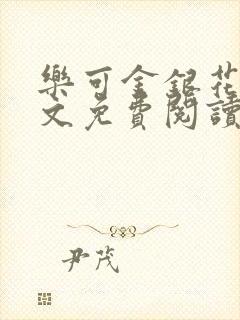 樂可金銀花
文免費閱讀
尹茂